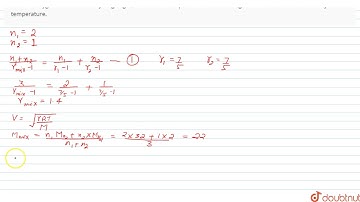 temperature.
n₁ = 2
n₂ = 1
(n₁+n₂)/(γmix -1) = n₁/(γ₁ -1) + n₂/(γ₂ -1) — ① γ₁ = 7/5 γ₂ = 7/5
3/(γmix -1) = 2/(7/5 -1) + 1/(7/5 -1)
γmix = 1.4
V = √(γRT/M)
Mmix = (n₁M₁ + n₂M₂)/(n₁+n₂) = (2×32 + 1×2)/3 = 22
doubtnut